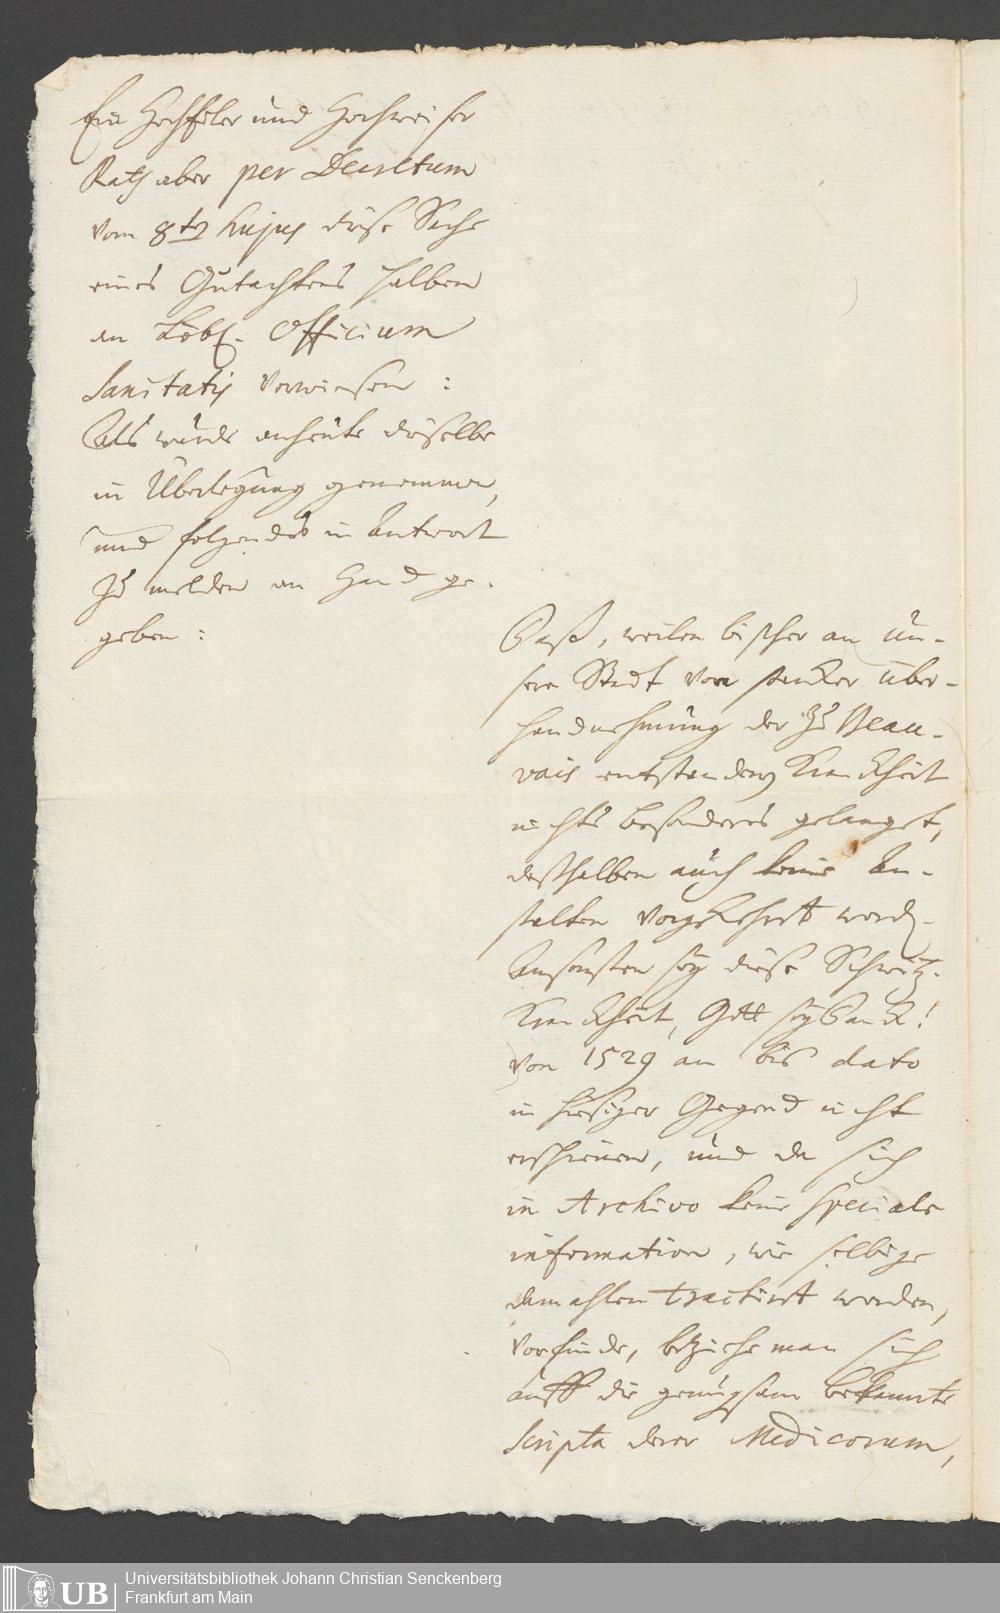 Ein Hochedler und Hochweiser
Rath aber per Decretum
vom 8ten hujus diese Sache
eines Gutachtens halben
an Löbl. Officium
Sanitatis verwiesen:
Als wurde anheute dieselbe
in Überlegung genommen,
und folgendes in Antwort
zu melden an Hand ge-
geben:
Daß, weilen bißher an un-
sere Stadt von starker über-
handnehmung der zu Beau-
vais entstandenen Kranckheit
nichts besonderes gelanget,
deßhalben auch keine An-
stalten vorgekehrt worden.
Ansonsten sey diese Schweiß-
Kranckheit, Gott sey Danck!
von 1529 an bis dato
in hiesiger Gegend nicht
erschienen, und da sich
in Archivo keine speciale
information, wie selbige
damahlen tractirt worden,
vorfinde, beziehe man sich
auff die genugsam bekannte
Scripta derer Medicorum,
UB Universitätsbibliothek Johann Christian Senckenberg
Frankfurt am Main